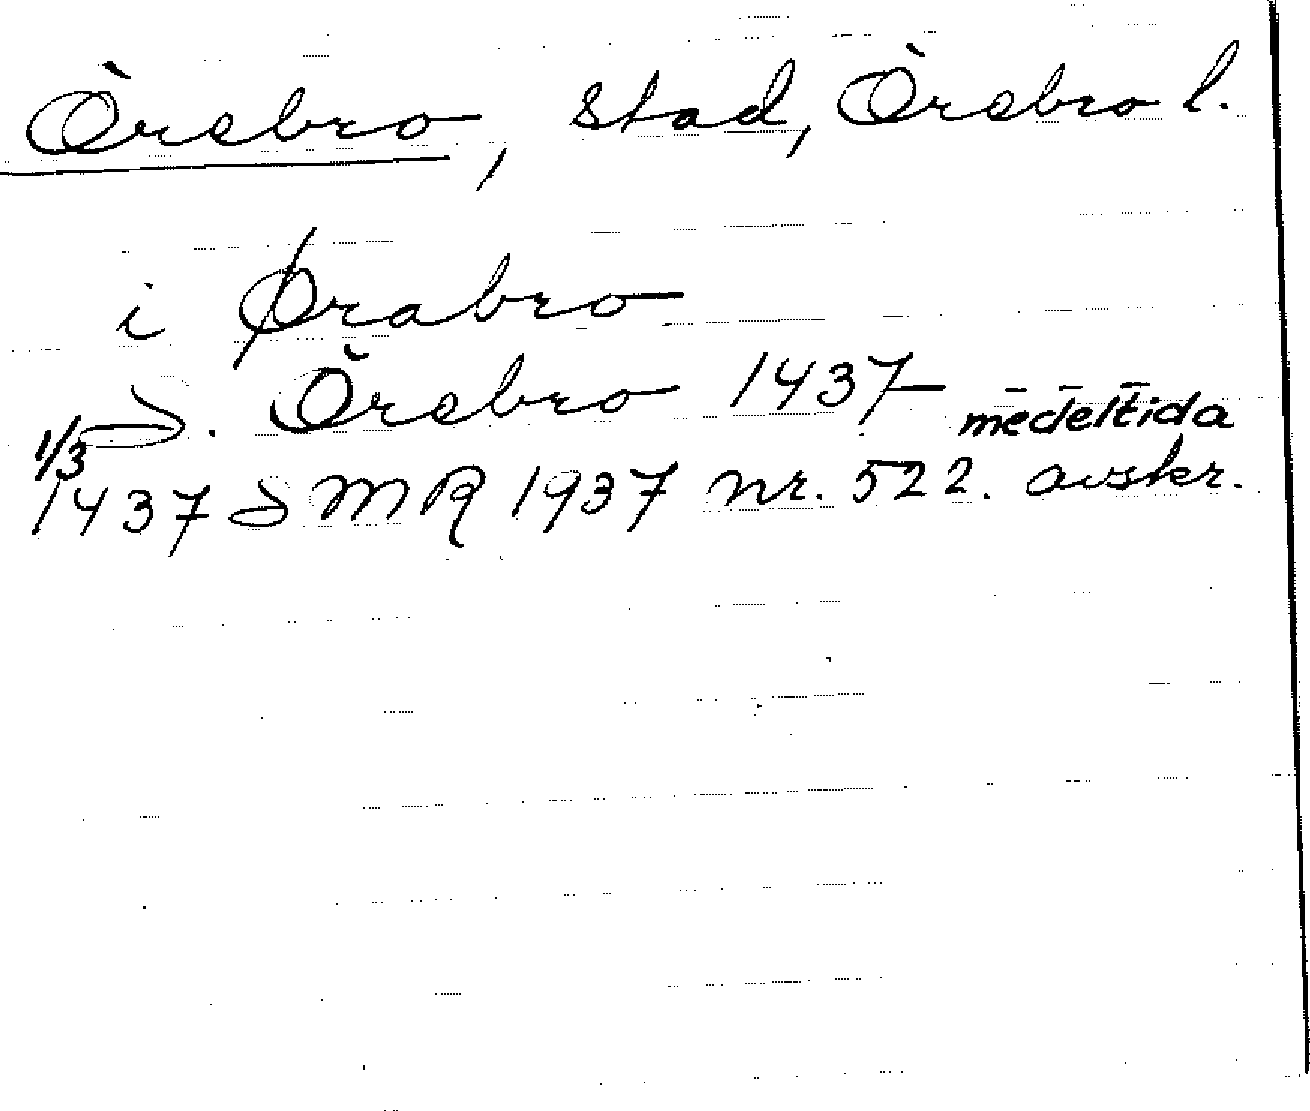 Örebro, stad, Örebro l.
i Ørabro
S. Örebro 1437
1/3 medeltida
1437 SMR 1937 nr. 522. avskr.